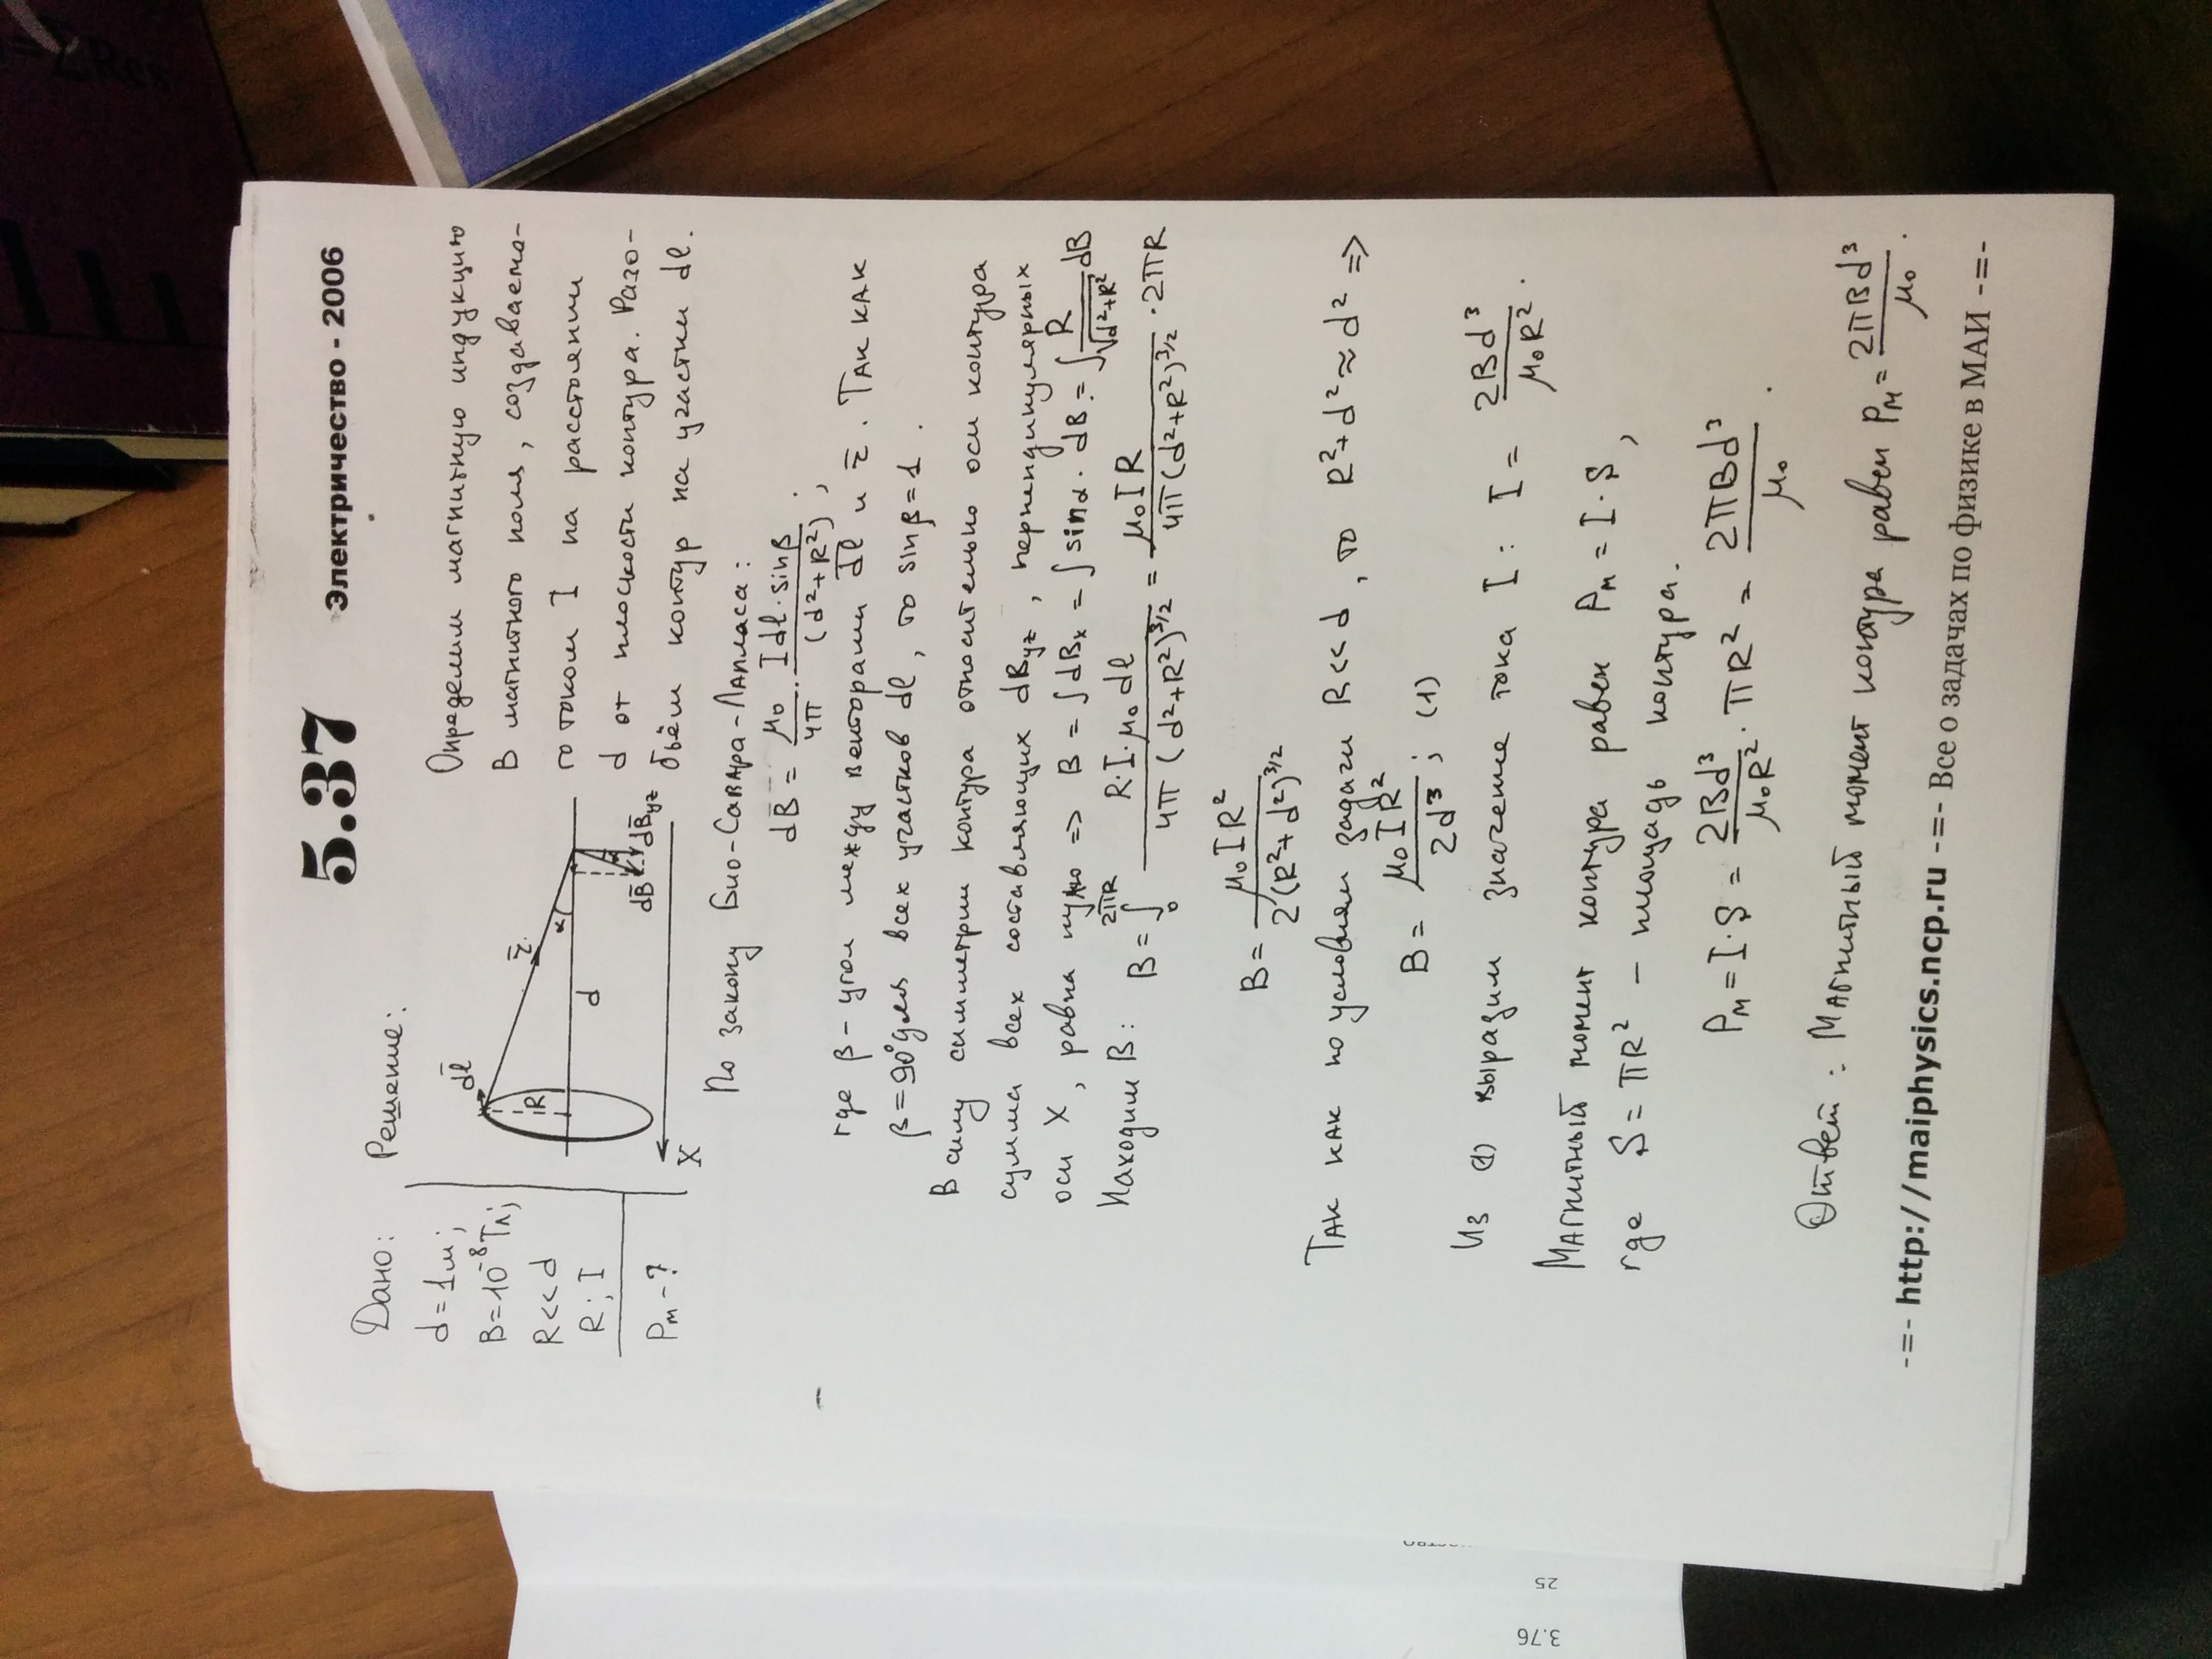 =ΣRes
5.37 Электричество - 2006
Дано:
d = 1 м;
B = 10⁻⁸ Тл;
R << d
R; I
Pм - ?
Решение:
d̄l
R
r̄
α
d
dB̄
dB̄yz
X
Определим магнитную индукцию
B магнитного поля, создаваемо-
го током I на расстоянии
d от плоскости контура. Разо-
бьём контур на участки dl.
По закону Био-Савара-Лапласа:
dB̄ = μ₀/4π · Idl·sinβ/(d²+R²);
где β - угол между векторами d̄l и r̄. Так как
β = 90° для всех участков dl, то sinβ = 1.
В силу симметрии контура относительно оси контура
сумма всех составляющих dByz, перпендикулярных
оси X, равна нулю => B = ∫dBx = ∫sinα·dB = ∫ R/√(d²+R²) dB
Находим B: B = ∫₀^2πR R·I·μ₀dl/4π(d²+R²)^3/2 = μ₀IR/4π(d²+R²)^3/2 · 2πR
B = μ₀IR²/2(R²+d²)^3/2
Так как по условиям задачи R<<d, то R²+d² ≈ d² =>
B = μ₀IR²/2d³; (1)
Из (1) выразим значение тока I: I = 2Bd³/μ₀R².
Магнитный момент контура равен Pм = I·S,
где S = πR² - площадь контура.
Pм = I·S = 2Bd³/μ₀R² · πR² = 2πBd³/μ₀.
Ответ: Магнитный момент контура равен Pм = 2πBd³/μ₀.
-=- http://maiphysics.ncp.ru -=- Все о задачах по физике в МАИ -=-
25
3.76